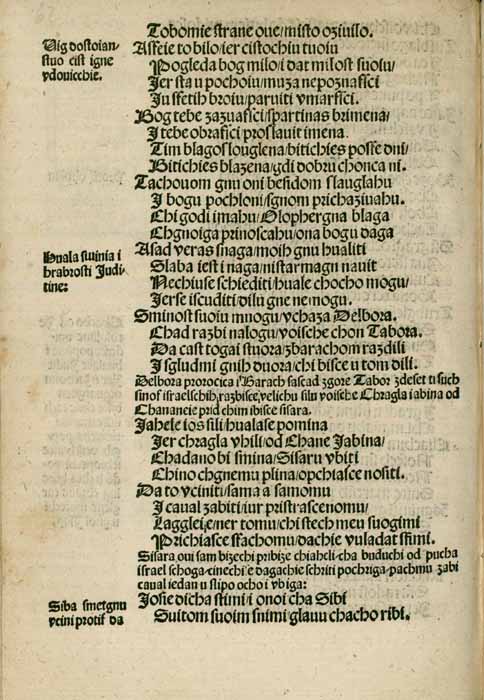 Tobomie strane oue/misto oziuilo.
Vig dostoian-
stuo cist igne
vdouicchie.
Asfeie to bilo/ier cistochiu tuoiu
Pogleda bog milo/i dat milost suoiu/
Jer sta u pochoiu/muza nepoznafsci
Ju sfetih broiu/paruiti vmarfsci.
Bog tebe zazuafsci/spartinas brimena/
I tebe obrafsci proslauit imena.
Tim blagoslouglena/bitichies posfe dni/
Bitichies blazena/gdi dobru chonca ni.
Tachouom gnu oni besidom slauglahu
I bogu pochloni/sgnom prichaziuahu.
Chi godi imahu/Olophergna blaga
Chgnoiga prinoscahu/ona bogu daga
Huala suinia i
hrabrosti Judi-
tine:
Asad veras snaga/moih gnu hualiti
Slaba iest i naga/nistarmagn nauit
Nechiuse schiediti/huale chocho mogu/
Jerse iscuditi/dilu gne ne mogu.
Sminost suoiu mnogu/vchaza Delbora.
Chad razbi nalogu/voische chon Tabora.
Da cast togai stuora/zbarachom razdili
I sgludmi gnih duora/chi bisce u tom dili.
Delbora prorocica i Barach sascad zgore Tabor zdeset ti such
sinof israelschih/razbisce/velichu silu voische Chragla iabina od
Chananeie prid chim ibisce sisara.
Jahele ios sili/hualase pomina
Jer chragla vhili/od Chane Jabina/
Chadano bi smina/Sisaru vbiti
Chino chgnemu plina/opchiasce nositi.
Da to vciniti/sama a samomu
I caual zabiti/iur pristrascenomu/
Lagglei/e/ner tomu/chi stech meu suogimi
Prichiasce sfachomu/dachie vuladat sfimi.
Sisara/oui sam bizechi pribize chiaheli-cha buduchi od pucha
israel schoga-cinechi e dagachie schriti pochriga-pachmu zabi
caual iedan u slipo ocho i vbiga:
Siba smetgnu
vcini protif da
Josfie dicha sfimi/i onoi cha Sibi
Suitom suoim snimi glauu chacho ribi.